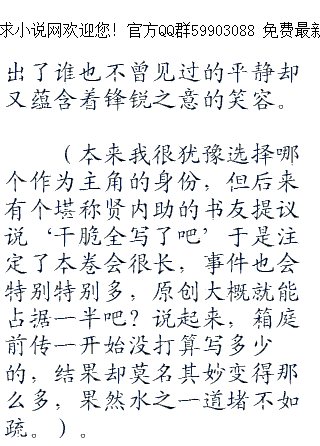 求小说网欢迎您！官方QQ群59903088 免费最新
出了谁也不曾见过的平静却
又蕴含着锋锐之意的笑容。
（本来我很犹豫选择哪
个作为主角的身份，但后来
有个堪称贤内助的书友提议
说‘干脆全写了吧’于是注
定了本卷会很长，事件也会
特别特别多，原创大概就能
占据一半吧？说起来，箱庭
前传一开始没打算写多少
的，结果却莫名其妙变得那
么多，果然水之一道堵不如
疏。）。